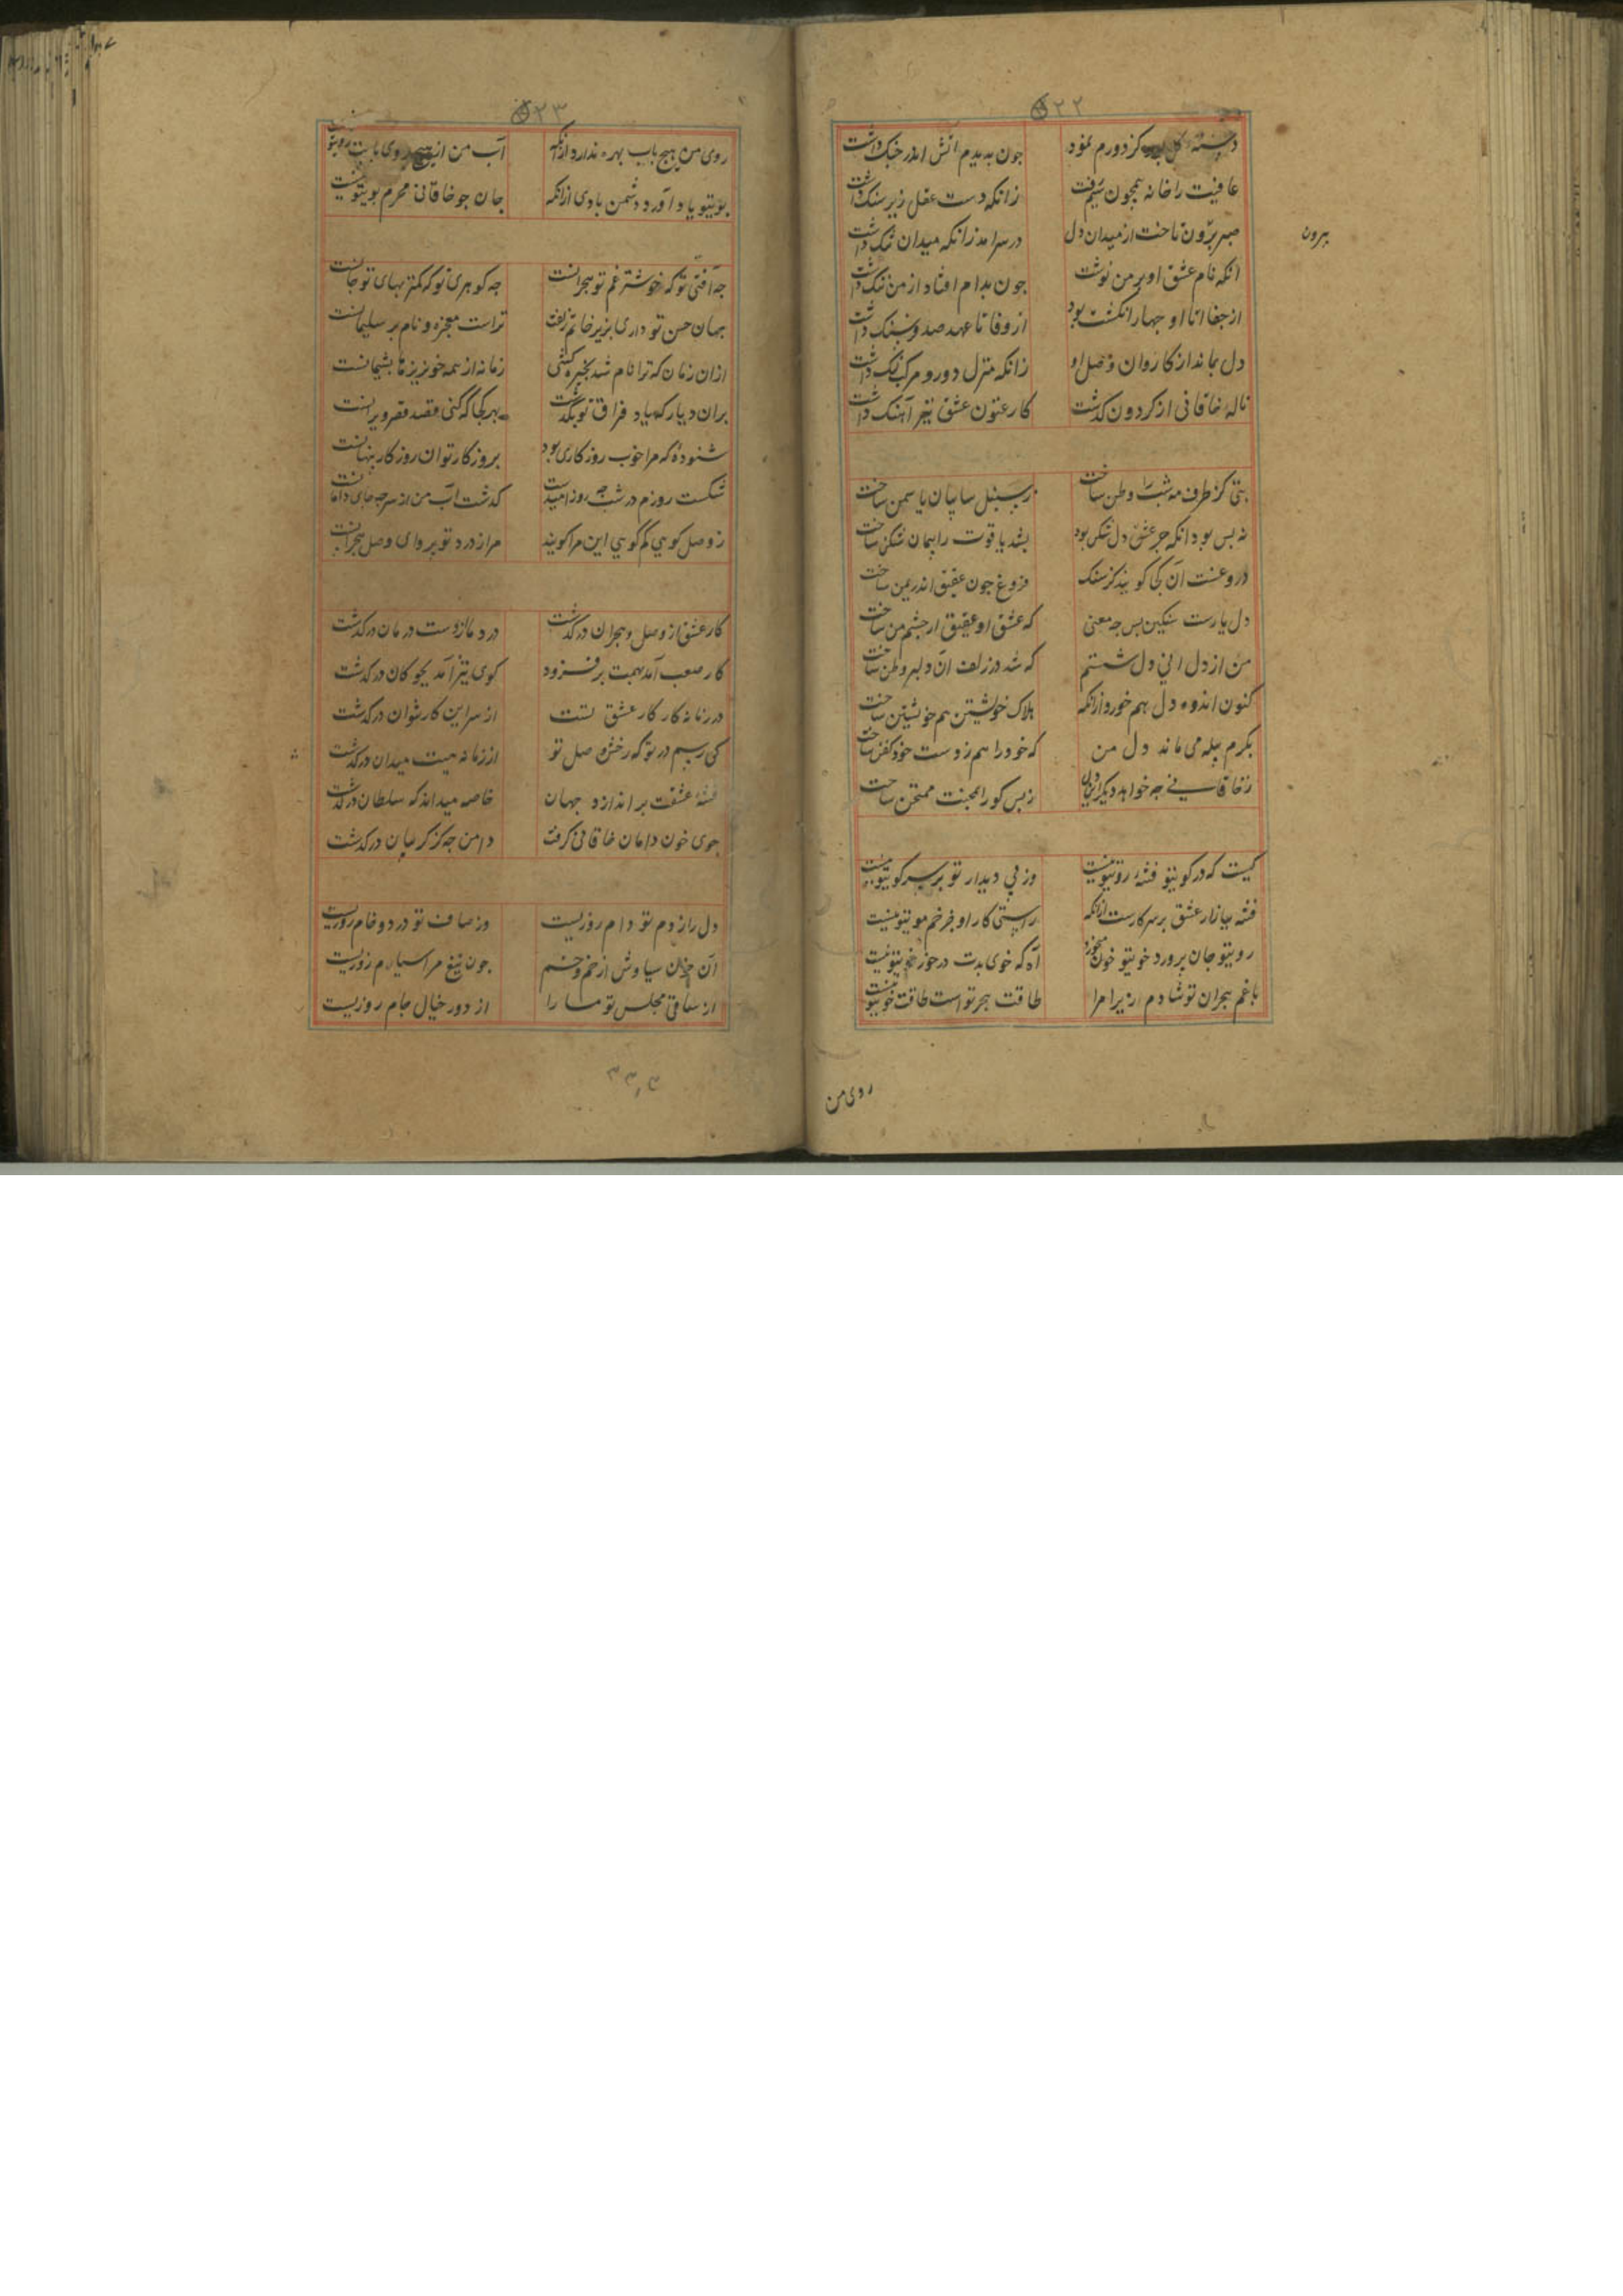 ۲۲
دسته گل کز دورم نمود جون به بدیدم آتش اندر جنک داشت
عافیت را خانه همچون سیم رفت زانکه دست عقل زیر سنک داشت
صبر برون تاخت از میدان دل در سر آمد زانکه میدان تنک داشت
بیرون
انکه نام عشق او بر من نوشت جون بدام افتاد از من ننک داشت
از جفا تا او جهار انکشت بود از وفا تا عهد صد فرسنک داشت
دل بماند از کاروان وصل او زانکه منزل دور و مرکب لنک داشت
ناله خاقانی از کردون کذشت کارغنون عشق تیز آهنک داشت
بتی کز طرف مه شب را وطن ساخت ز سنبل سایبان یاسمن ساخت
نه بس بود انکه جزعش دل شکن بود بشد یاقوت را پیمان شکن ساخت
دروغست آن کجا کویند کز سنک فروغ جون عقیق اندر یمن ساخت
دل یارست سنکین بس جه معنی که عشق او عقیق از جشم من ساخت
من از دل انی دل شستم که شد در زلف آن دلبر وطن ساخت
کنون اندوه دل هم خورد ازانکه هلاک خویشتن هم خویشتن ساخت
بکرم پیله می ماند دل من که خود را هم ز دست خود کفن ساخت
ز خاقانی جه خواهد دیکر این دل ز بس کو را بمحنت ممتحن ساخت
کیست که در کویتو فتنه رویتو نیست وز پی دیدار تو بر سر کویتو نیست
فتنه ببازار عشق بر سر کارست ازانکه راستی کار او جز خم مویتو نیست
رویتو جان پرورد خویتو خون میخورد آه که خوی بدت در خور خویتو نیست
با غم هجران تو شادم زیرا مرا طاقت هجر تو است طاقت خویتو
روی من
۲۳
روی من هیچ باب بهره ندارد ازانکه آب من از هیچ روی بابت رویتو نیست
بویتو باد آورد دشمن بادی ازانکه جان جو خاقانی محرم بویتو نیست
جه آفتی تو که خوشتر غم تو هجرانست جه کوهری تو که کمتر بهای تو جانست
جهان حسن تو داری بزیر خاتم زلف تراست معجزه و نام بر سلیمانست
ازان زمان که ترا نام شد بخیره کشی زمانه از همه خونریزها بشیمانست
بران دیار که باد فراق تو بکذشت بهر کجا که کنی قصد قصر ویرانست
شنوده که مرا خوب روزکاری بود بروزکار تو آن روزکار پنهانست
شکست روزم در شب جه روز امیدست کذشت آب من از سر جه جای دامانست
ز وصل کویی کم کویی این مرا کویند مرا ز درد تو پروای وصل و هجرانست
کار عشق از وصل و هجران درکذشت درد ما از دست درمان درکذشت
کار صعب آمد بهمت برفزود کوی تیز آمد بجوکان درکذشت
در زمانه کار کار عشق تست از سر این کار نتوان درکذشت
کی رسم در تو که رخش وصل تو از زمانه بیست میدان درکذشت
فتنه عشقت براندازد جهان خاصه میداند که سلطان درکذشت
جوی خون دامان خاقانی کرفت دامن جه کز کریبان درکذشت
دل را ز دم تو دام روزیست وز صاف تو درد خام روزیست
آن جون سیاوش از خم و خشم جون تیغ مراسیارم روزیست
از ساقی مجلس تو ما را از دور خیال جام روزیست